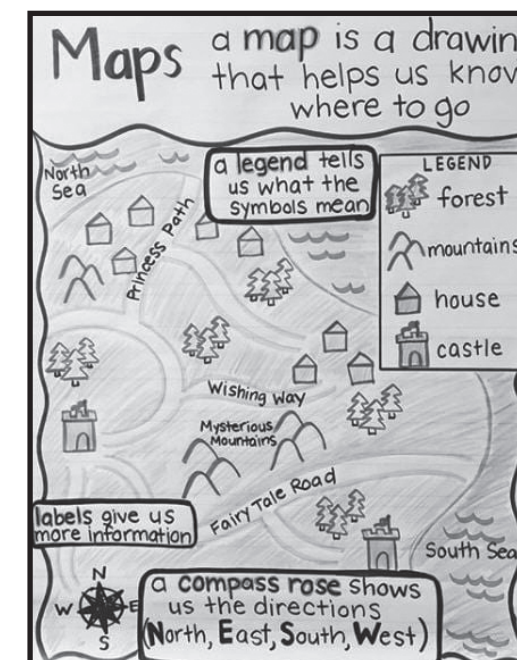 Maps
a map is a drawin
that helps us know
where to go
North
Sea
a legend tells
us what the
symbols mean
LEGEND
forest
mountains
house
castle
Princess Path
Wishing Way
Mysterious
Mountains
Fairy Tale Road
labels give us
more information
South Sea
N
W E
S
a compass rose shows
us the directions
(North, East, South, West)